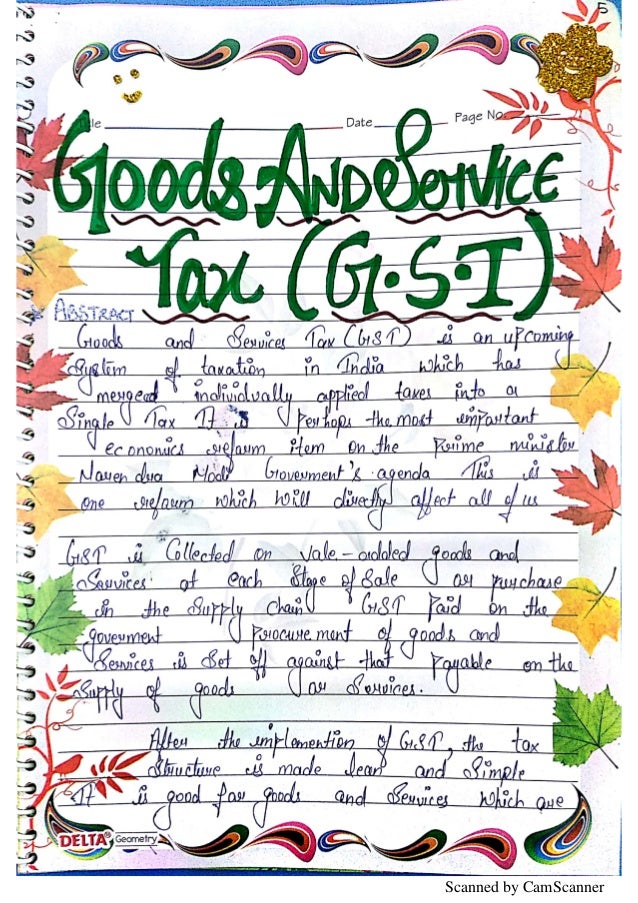 5
Title Date Page No.
Goods And Service
Tax (G.S.T)
ABSTRACT
Goods and Services Tax (GST) is an upcoming
System of taxation in India which has
merged individually applied taxes into a
Single Tax It is perhaps the most important
economics reform item on the Prime minister
Narendra Modi Goverment's agenda This is
one reform which will directly affect all of us
GST is Collected on vale-added goods and
Services at each Stage of Sale or purchase
in the Supply Chain GST Paid on the
goverment procurement of goods and
Services is Set off against that Payable on the
Supply of goods or Services.
After the implemention of GST, the tax
Structure is made lean and Simple
It is good for goods and Services which are
DELTA Geometry
Scanned by CamScanner